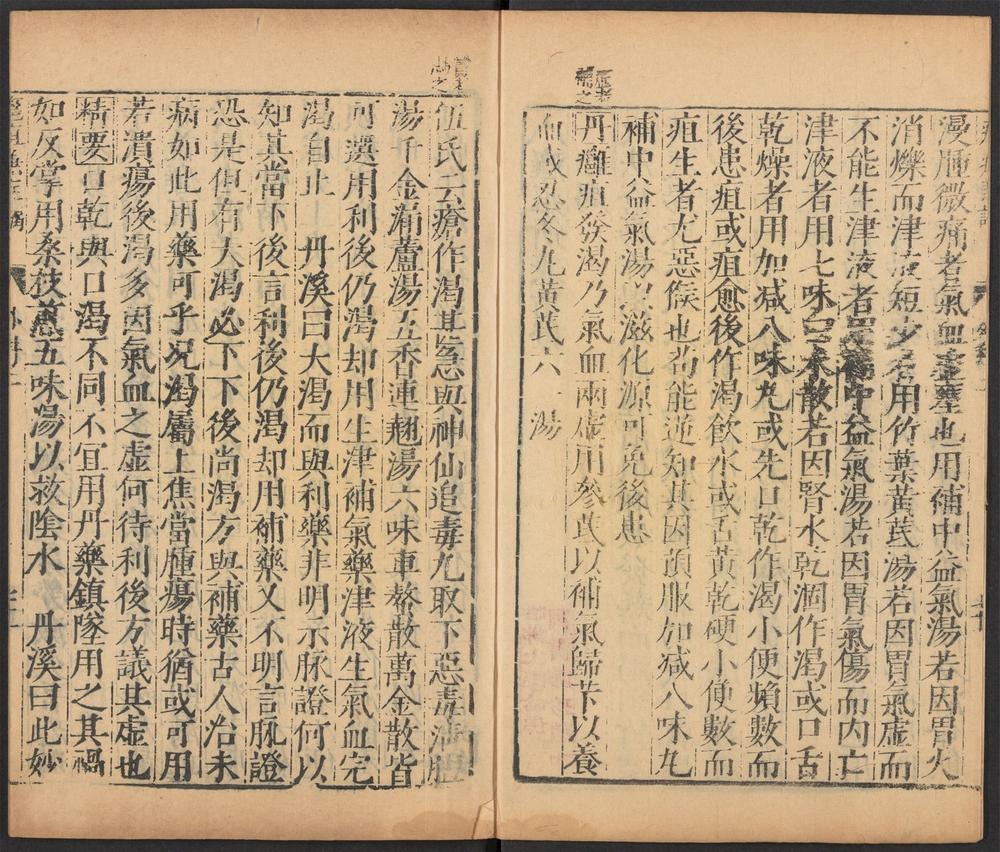 漫腫微痛者氣血虛壅也用補中益氣湯若因胃火
消爍而津液短少者用竹葉黃芪湯若因胃氣虛而
不能生津液者用補中益氣湯若因胃氣傷而內亡
津液者用七味白朮散若因腎水乾涸作渴或口舌
乾燥者用加減八味丸或先口乾作渴小便頻數而
後患疽或疽愈後作渴飲水或舌黃乾硬小便數而
疽生者尤惡候也苟能逆知其因預服加減八味丸
補中益氣湯以滋化源可免後患
丹癰疽發渴乃氣血兩虛用參芪以補氣歸芐以養
血或忍冬丸黃芪六一湯
伍氏云瘡作渴甚急與神仙追毒丸取下惡毒
湯千金漏蘆湯五香連翹湯六味車螯散萬金散皆
可選用利後仍渴却用生津補氣藥津液生氣血完
渴自止 丹溪曰大渴而與利藥非明示脉證何以
知其當下後言利後仍渴却用補藥又不明言脉證
恐是但有大渴必下下後尚渴方與補藥古人治未
病如此用藥可乎况渴屬上焦當腫瘍時猶或可用
若潰瘍後渴多因氣血之虛何待利後方議其虛也
精要口乾與口渴不同不宜用丹藥鎮墜用之其禍
如反掌用桑枝蔥五味湯以救陰水 丹溪曰此妙